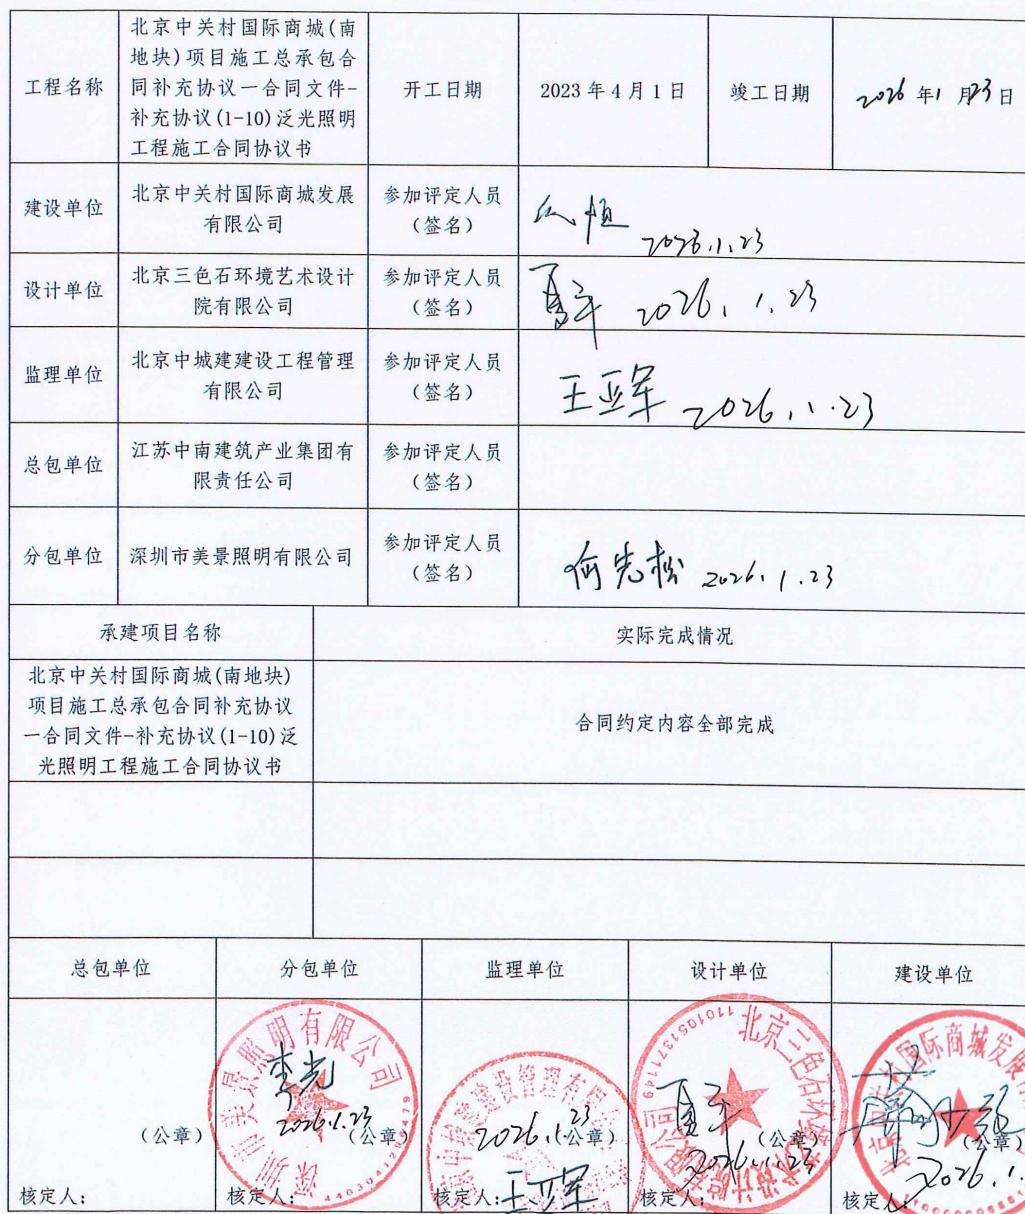 工程名称
北京中关村国际商城(南
地块)项目施工总承包合
同补充协议一合同文件-
补充协议(1-10)泛光照明
工程施工合同协议书
开工日期
2023年4月1日
竣工日期
2026年1月23日
建设单位
北京中关村国际商城发展
有限公司
参加评定人员
(签名)
设计单位
北京三色石环境艺术设计
院有限公司
参加评定人员
(签名)
2026.1.23
监理单位
北京中城建建设工程管理
有限公司
参加评定人员
(签名)
王亚军 2026.1.23
总包单位
江苏中南建筑产业集团有
限责任公司
参加评定人员
(签名)
分包单位
深圳市美景照明有限公司
参加评定人员
(签名)
何先松 2026.1.23
承建项目名称
实际完成情况
北京中关村国际商城(南地块)
项目施工总承包合同补充协议
一合同文件-补充协议(1-10)泛
光照明工程施工合同协议书
合同约定内容全部完成
总包单位
分包单位
监理单位
设计单位
建设单位
(公章)
核定人:
深圳市美景照明有限公司
2026.1.23
(公章)
核定人:
2026.1.23
(公章)
核定人:王亚军
1101051371149
2026.1.23
(公章)
核定人:
国际商城发展
(公章)
2026.1.
核定人: